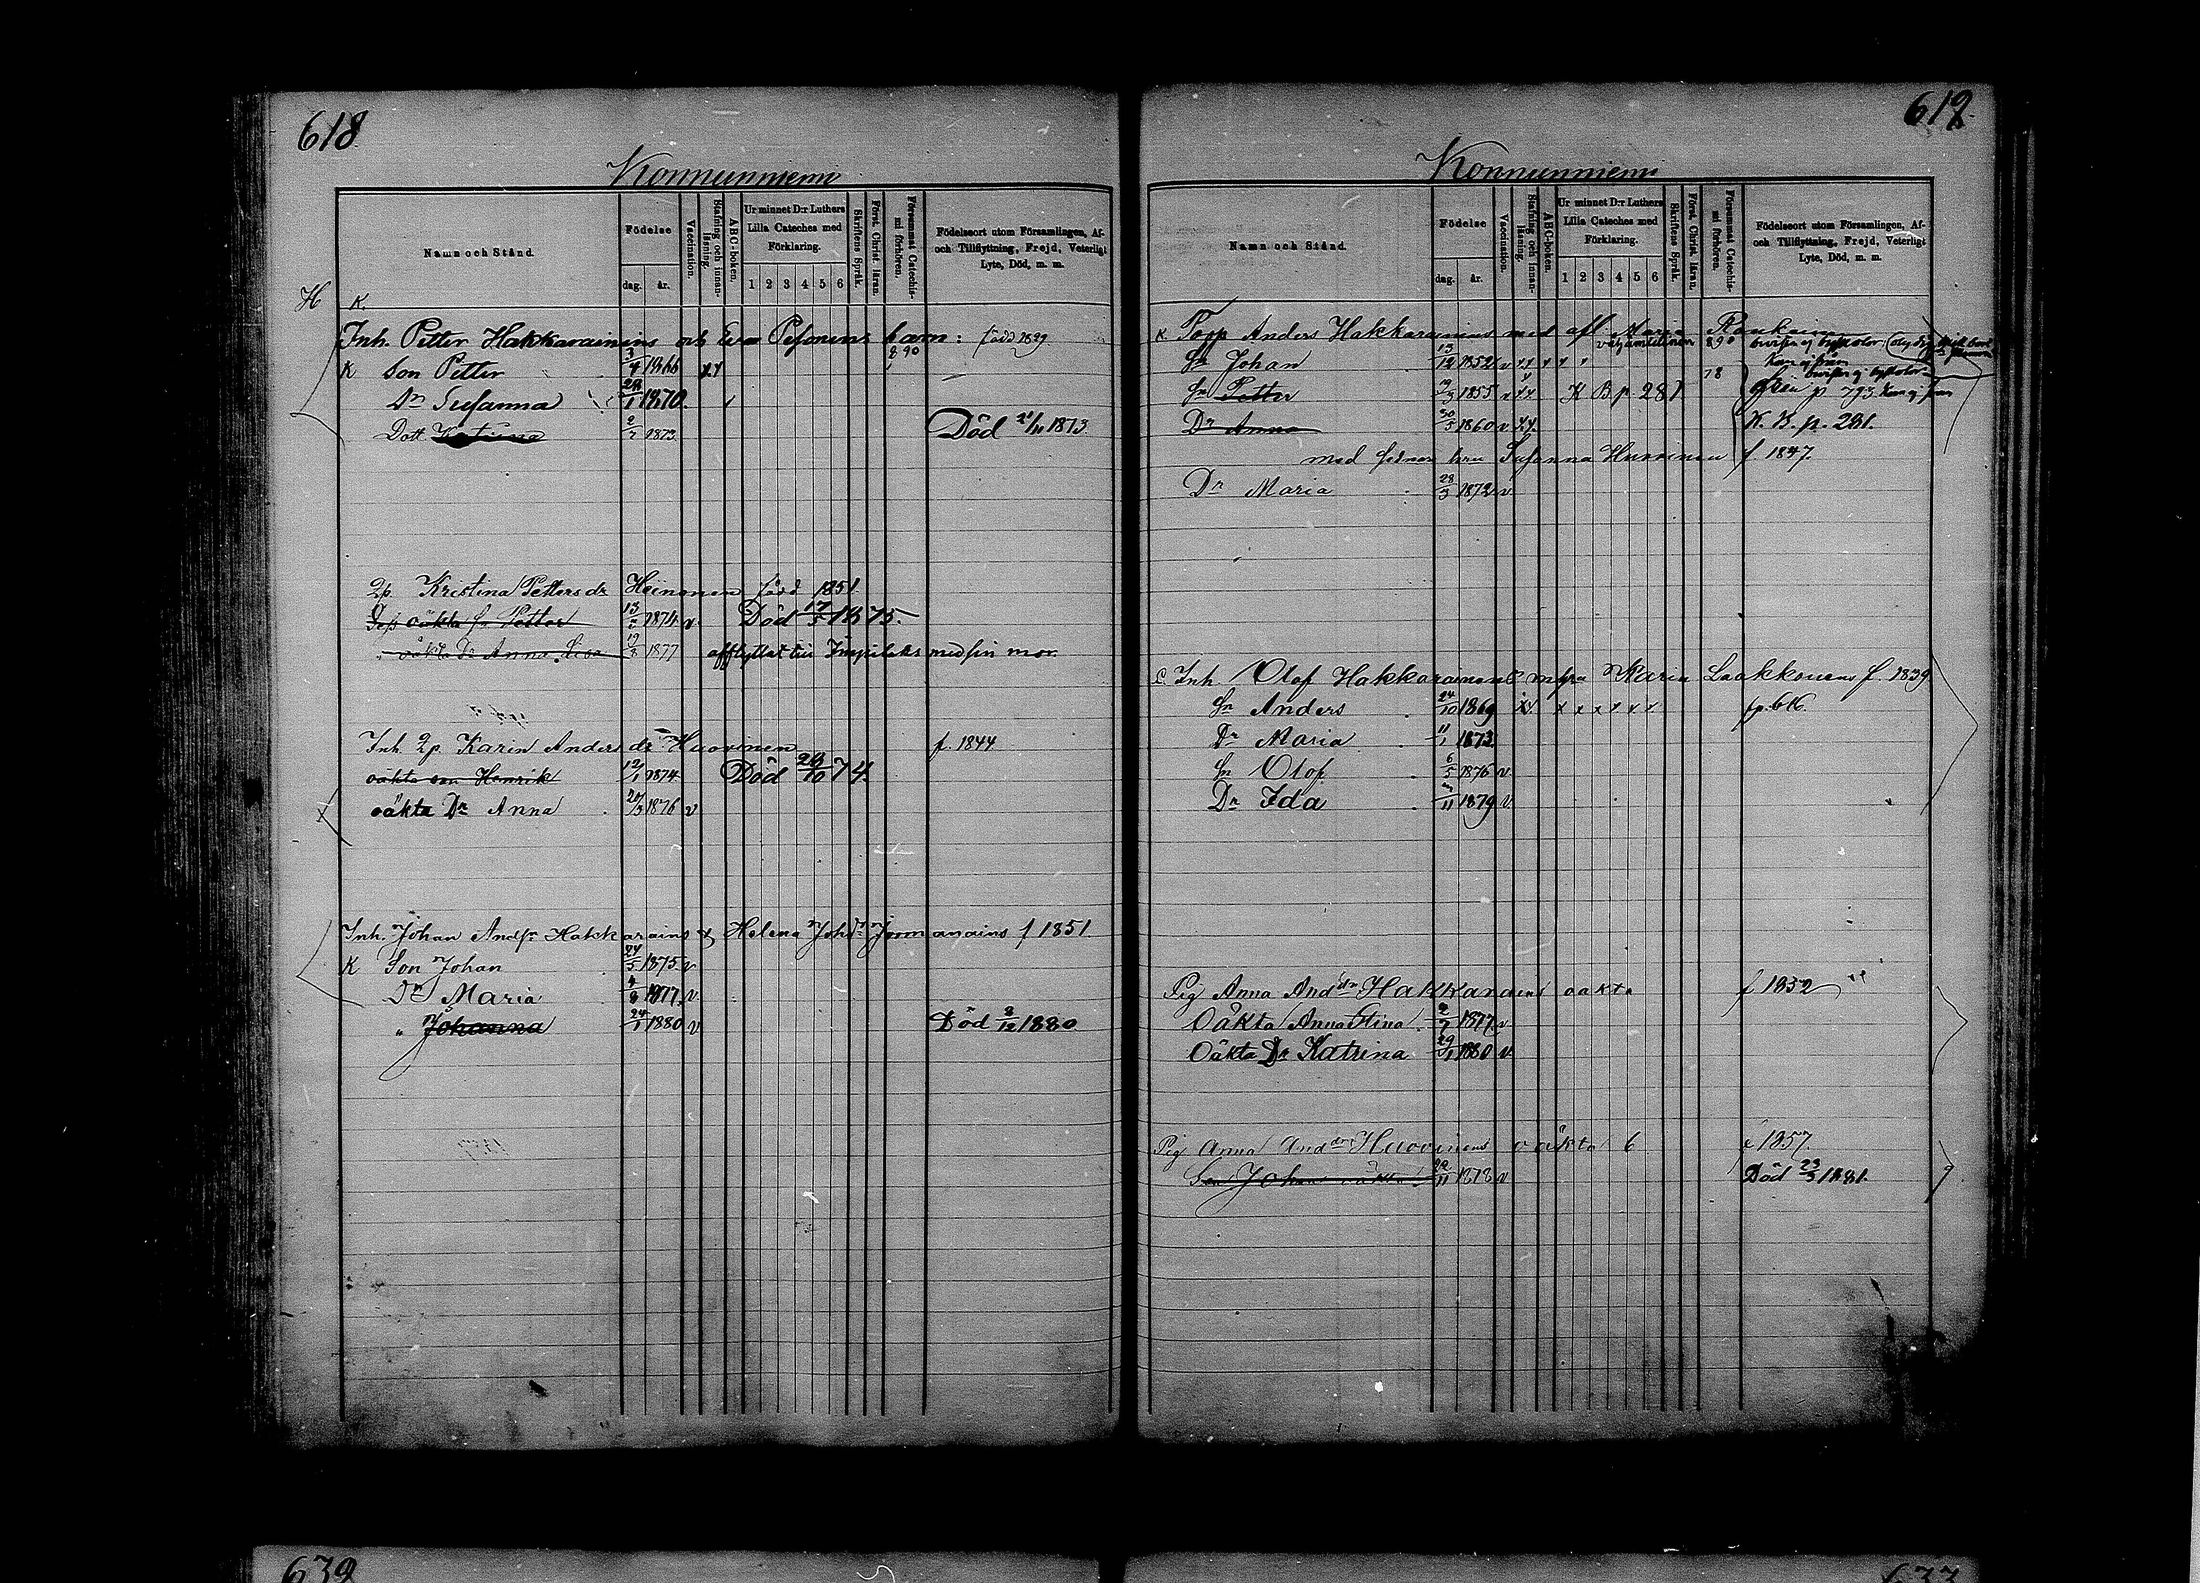 618
Konnunniemi
Namn och Stånd.
Födelse
dag.
år.
Vaccination.
Stafning och innan-läsning.
ABC-boken.
Ur minnet D:r Luthers
Lilla Cateches med
Förklaring.
1 2 3 4 5 6
Skriftens Språk.
Först. Christ. läran.
Försummat Catechis-mi förhören.
Födelseort utom Församlingen, Af-
och Tillflyttning, Frejd, Veterligt
Lyte, Död, m. m.
H K
Inh. Petter Hakkarainens och Eva Pesonens barn: född 1829
K Son Petter 3/4 1866 8 90
Dr Susanna 1 1870
Dott Katrina 1873 Död 21/11 1873
2p. Kristina Pettersdr Heinonen född 1851
oäkta sn Petter 13 1874 v Död 17/5 1875.
oäkta Dr Anna Lisa 19/8 1877 afflyttat till Impilaks med sin mor.
Inh. 2p. Karin Anders dr Huovinen f. 1844
oäkta son Henrik 12/1 1874 Död 28/10 74.
oäkta Dr Anna 27/3 1876 v
Inh. Johan Andsn Hakkarains & Helena Johdr Jormanains f 1851
K Son Johan 24/5 1875 v
Dr Maria 4/8 1877 v
" Johanna 24/1 1880 v Död 8/12 1880
619
Konnunniemi
Namn och Stånd.
Födelse
dag.
år.
Vaccination.
Stafning och innan-läsning.
ABC-boken.
Ur minnet D:r Luthers
Lilla Cateches med
Förklaring.
1 2 3 4 5 6
Skriftens Språk.
Först. Christ. läran.
Försummat Catechis-mi förhören.
Födelseort utom Församlingen, Af-
och Tillflyttning, Frejd, Veterligt
Lyte, Död, m. m.
K Torp Anders Hakkarainens med afl Maria
Sn Johan 13/12 1852 v 8 90
Sn Petter 19/3 1855 K B p 281 78 p 793
Dr Anna 30/5 1860 v K. B. p. 281.
med sednare hru Susanna Huovinen f. 1847.
Dr Maria 28/3 1872 v
Inh. Olof Hakkarainens m hu Maria Laakkonens f. 1839
Sn Anders 24/10 1869
Dr Maria 11/1 1873
Sn Olof 6/5 1876 v
Dr Ida 11 1879 v
Pig Anna Anddr Hakkarains oäkta f 1852
Oäkta Anna Stina 2/7 1877 v
Oäkta Dr Katrina 29/1 1880 v
Pig Anna Anddr Huovinens oäkta 6 1857
Son Johan oäkta 22/11 1878 v Död 23/3 1881.
632
633